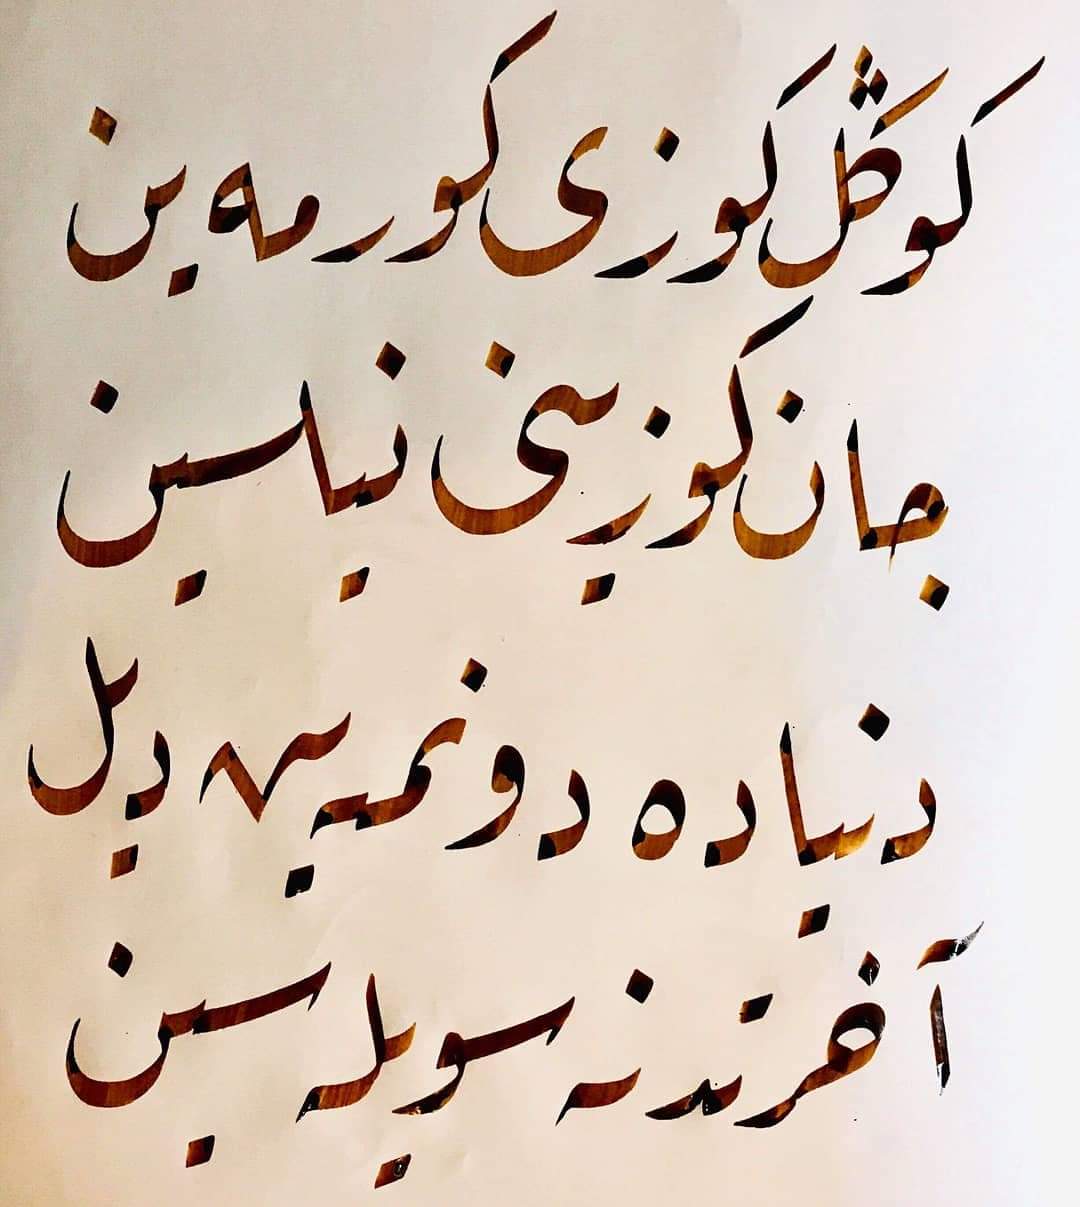 كوڭل كوزی كورمه ین
جان كوزینی نیلسین
دنیاده دونمیه سه دیل
آخرتد نه سویله سین